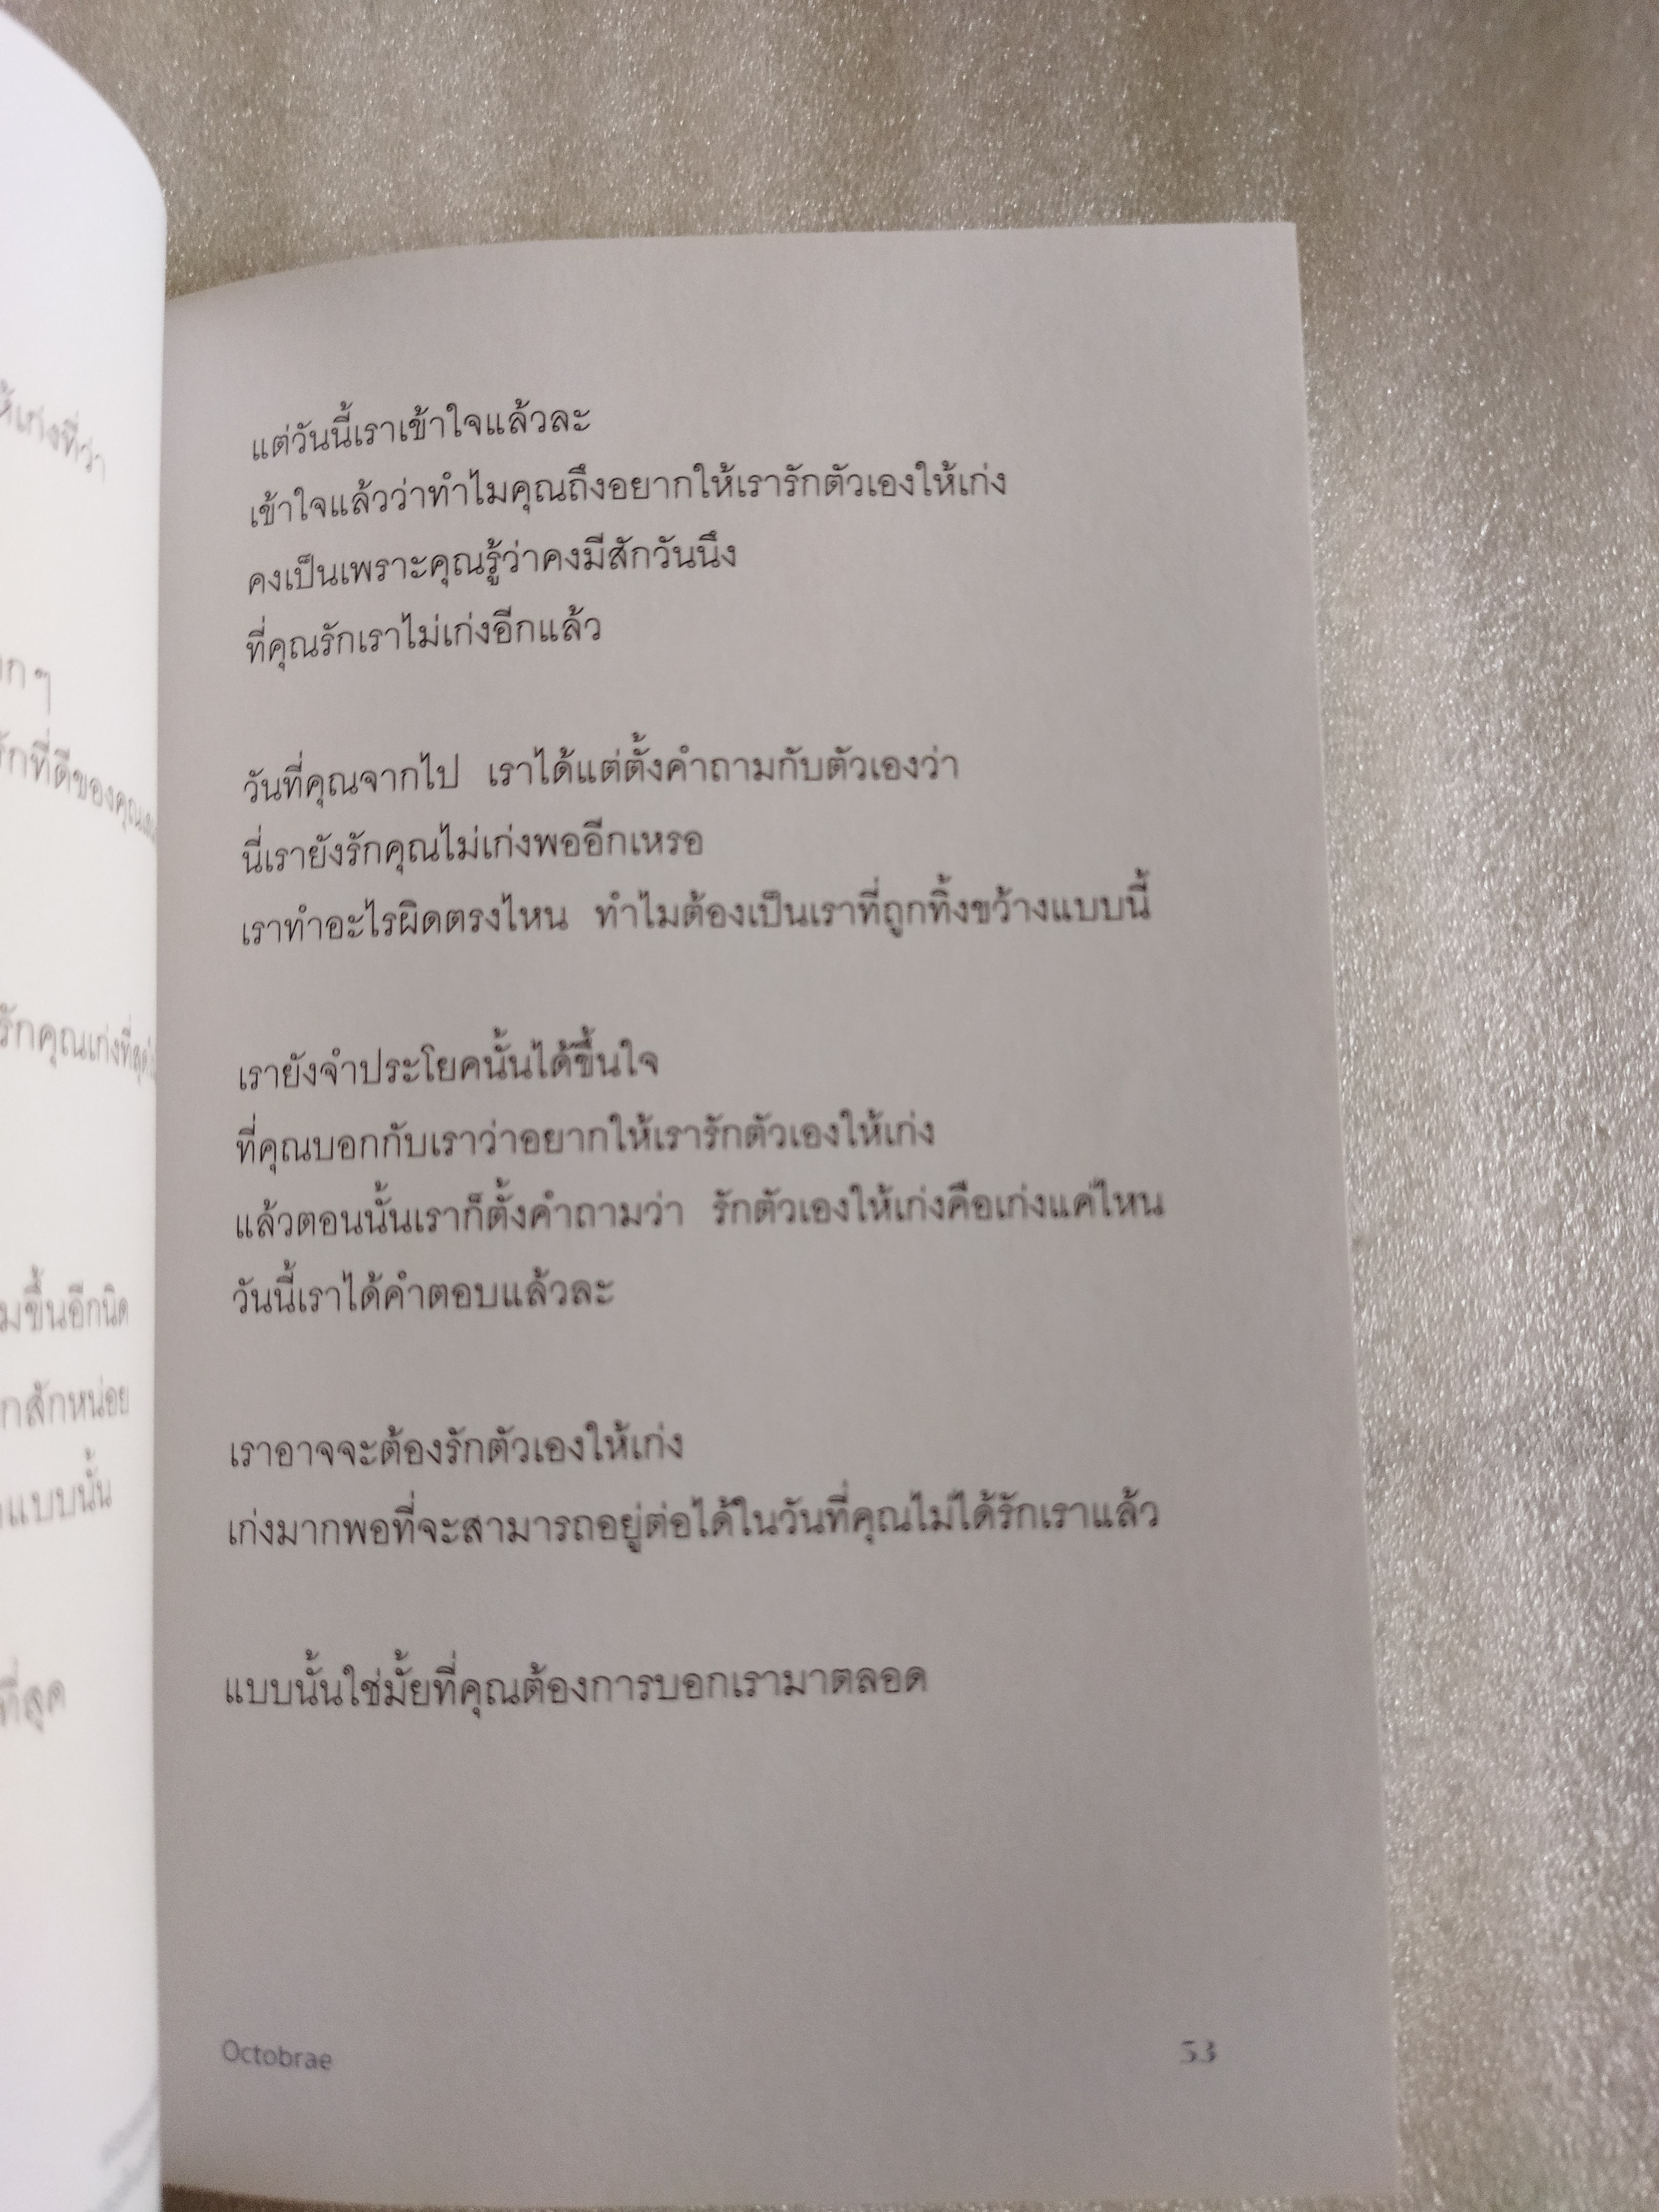 ห้เก่งที่ว่า
กๆ
รักที่ดีของคุณ
รักคุณเก่งที่สุด
มขึ้นอีกนิด
กสักหน่อย
แบบนั้น
ที่สุด
แต่วันนี้เราเข้าใจแล้วละ
เข้าใจแล้วว่าทำไมคุณถึงอยากให้เรารักตัวเองให้เก่ง
คงเป็นเพราะคุณรู้ว่าคงมีสักวันนึง
ที่คุณรักเราไม่เก่งอีกแล้ว
วันที่คุณจากไป เราได้แต่ตั้งคำถามกับตัวเองว่า
นี่เรายังรักคุณไม่เก่งพออีกเหรอ
เราทำอะไรผิดตรงไหน ทำไมต้องเป็นเราที่ถูกทิ้งขว้างแบบนี้
เรายังจำประโยคนั้นได้ขึ้นใจ
ที่คุณบอกกับเราว่าอยากให้เรารักตัวเองให้เก่ง
แล้วตอนนั้นเราก็ตั้งคำถามว่า รักตัวเองให้เก่งคือเก่งแค่ไหน
วันนี้เราได้คำตอบแล้วละ
เราอาจจะต้องรักตัวเองให้เก่ง
เก่งมากพอที่จะสามารถอยู่ต่อได้ในวันที่คุณไม่ได้รักเราแล้ว
แบบนั้นใช่มั้ยที่คุณต้องการบอกเรามาตลอด
Octobrae
53